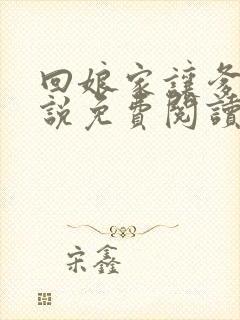 回娘家讓爹
説免費閱讀
宋鑫